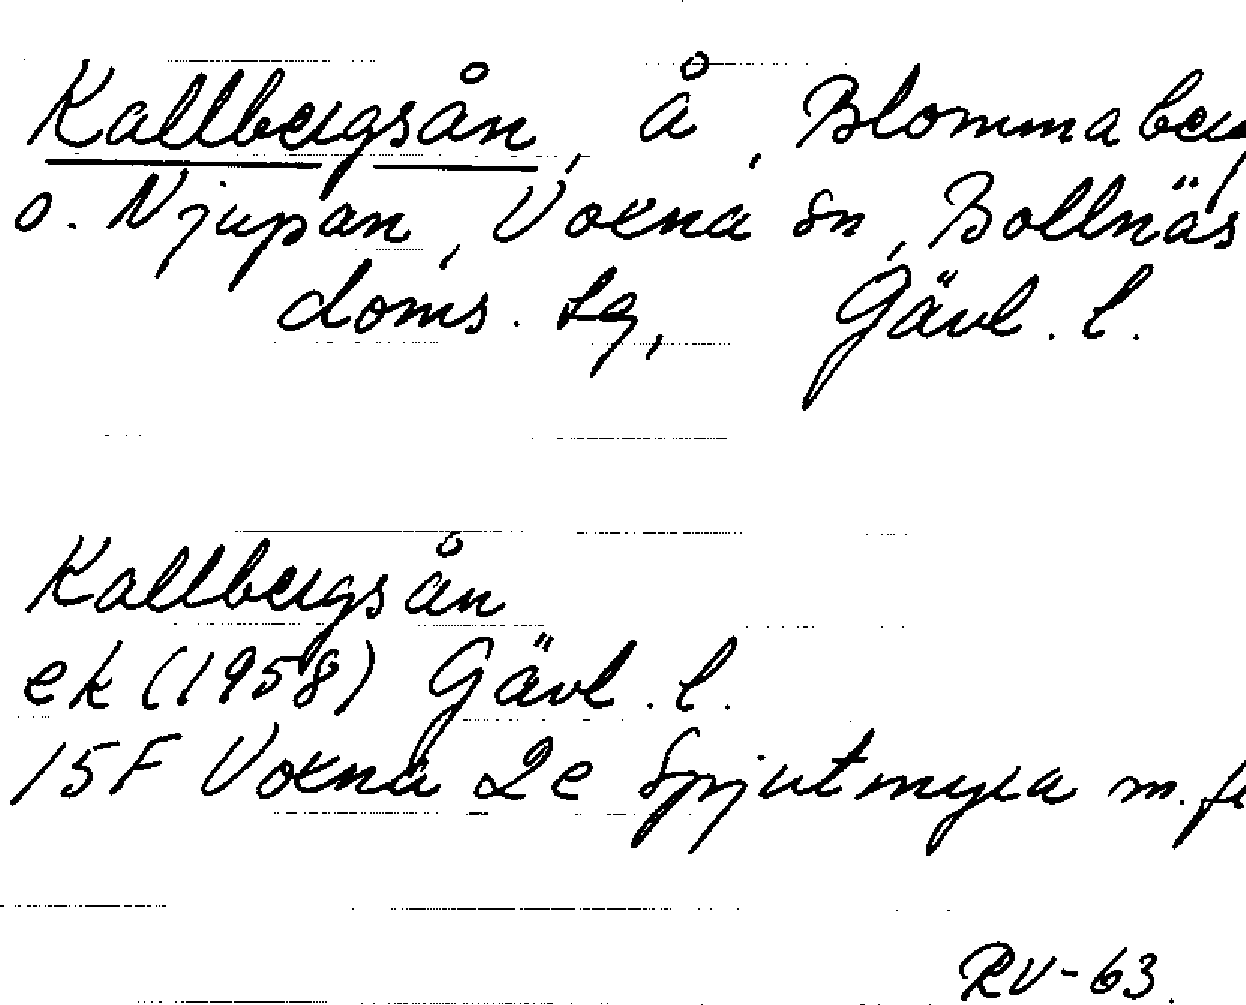 Kallbergsån, å, Blommaberg
o. Njupån, Voxna sn, Bollnäs
doms. sg, Gävl. l.
Kallbergsån
ek (1958) Gävl. l.
15F Voxna 2e Spjutmyra m.fl
RV-63.